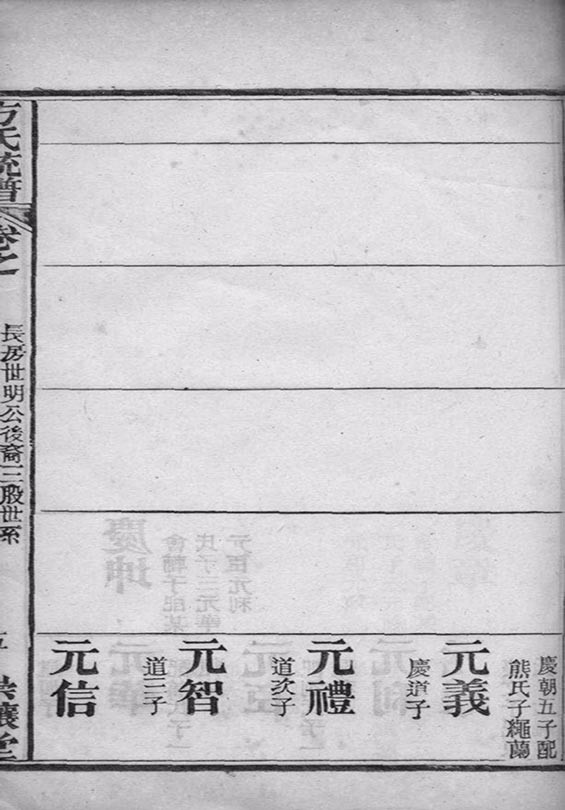 慶朝五子配
熊氏子繩蘭
元義
慶道子
元禮
道次子
元智
道三子
元信
方氏統譜
卷之
長房世明公後裔三股世系